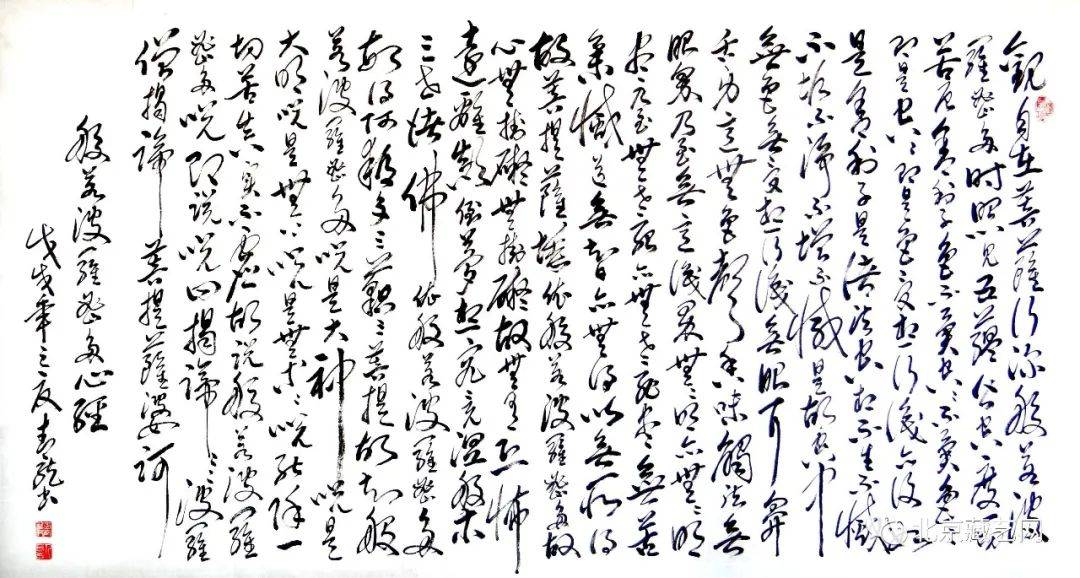 觀自在菩薩行深般若波
羅蜜多時照見五蘊皆空度一切
苦厄舍利子色不異空空不異色色
即是空空即是色受想行識亦復如
是舍利子是諸法空相不生不滅
不垢不淨不增不減是故空中
無色無受想行識無眼耳鼻
舌身意無色聲香味觸法無
眼界乃至無意識界無無明亦無無明
盡乃至無老死亦無老死盡無苦
集滅道無智亦無得以無所得
故菩提薩埵依般若波羅蜜多故
心無掛礙無掛礙故無有恐怖
遠離顛倒夢想究竟涅槃
三世諸佛依般若波羅蜜多
故得阿耨多三藐三菩提故知般
若波羅蜜多咒是大神咒是
大明咒是無上咒是無等等咒能除一
切苦真實不虛故說般若波羅
蜜多咒即說咒曰揭諦揭諦波羅
僧揭諦 菩提薩婆訶
般若波羅蜜多心經
戊戌年之夏書
北京藏艺网